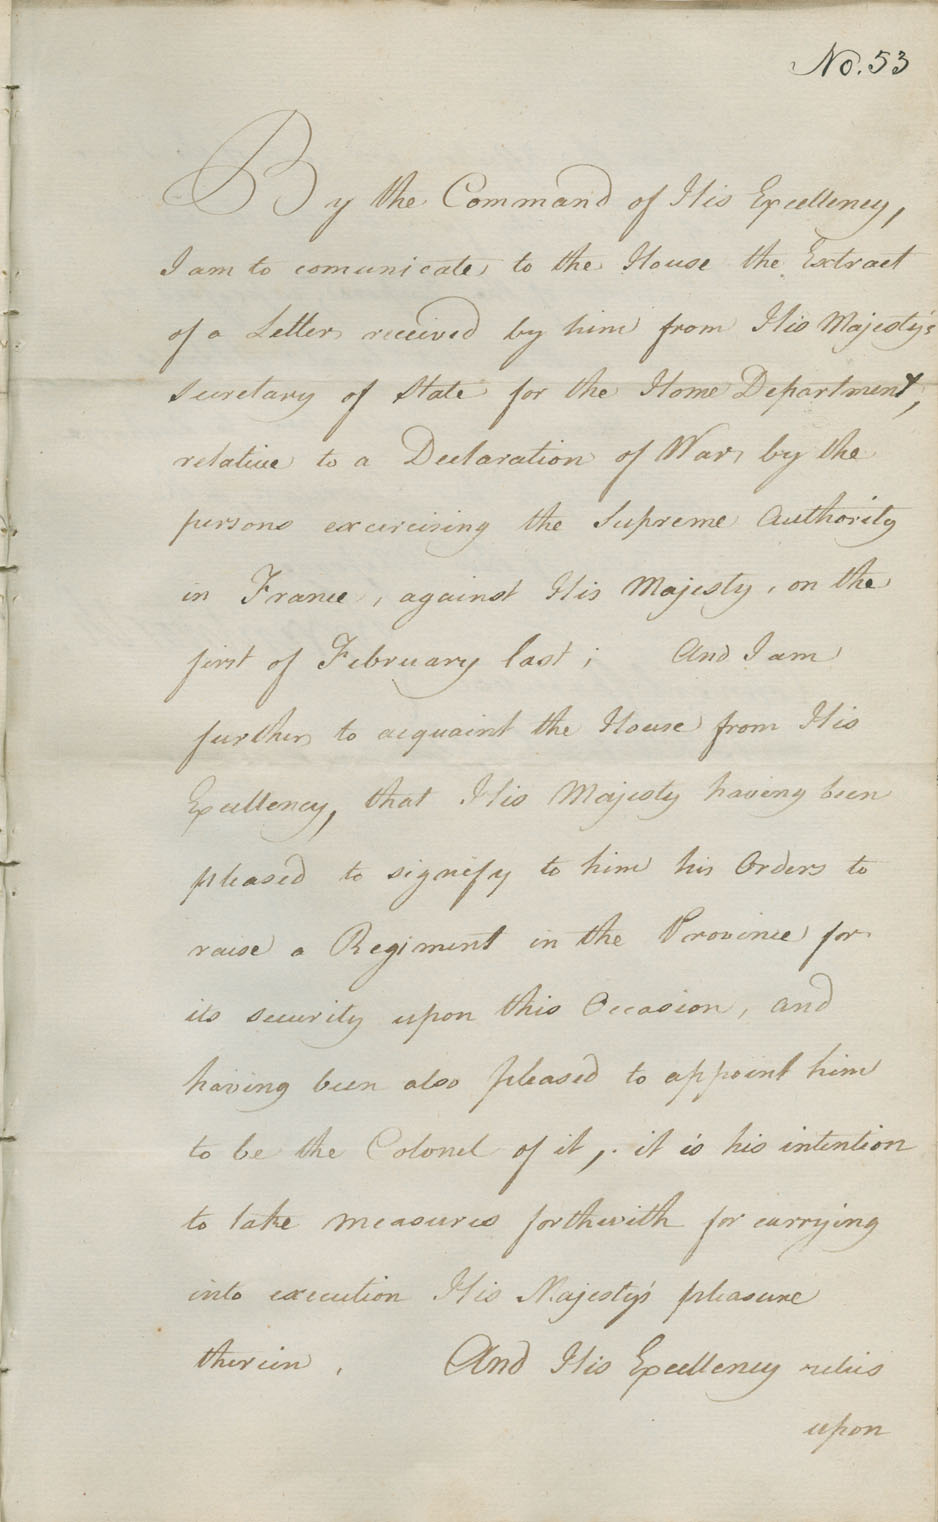 No. 53
By the Command of His Excellency,
I am to comunicate to the House the Extract
of a Letter received by him from His Majesty's
Secretary of State for the Home Department,
relative to a Declaration of War by the
persons excercising the Supreme Authority
in France, against His Majesty, on the
first of February last; And I am
further to acquaint the House from His
Excellency, that His Majesty having been
pleased to signify to him his Orders to
raise a Regiment in the Province for
its security upon this Occasion, and
having been also pleased to appoint him
to be the Colonel of it, it is his intention
to take measures forthwith for carrying
into execution His Majesty's pleasure
therein. And His Excellency relies
upon